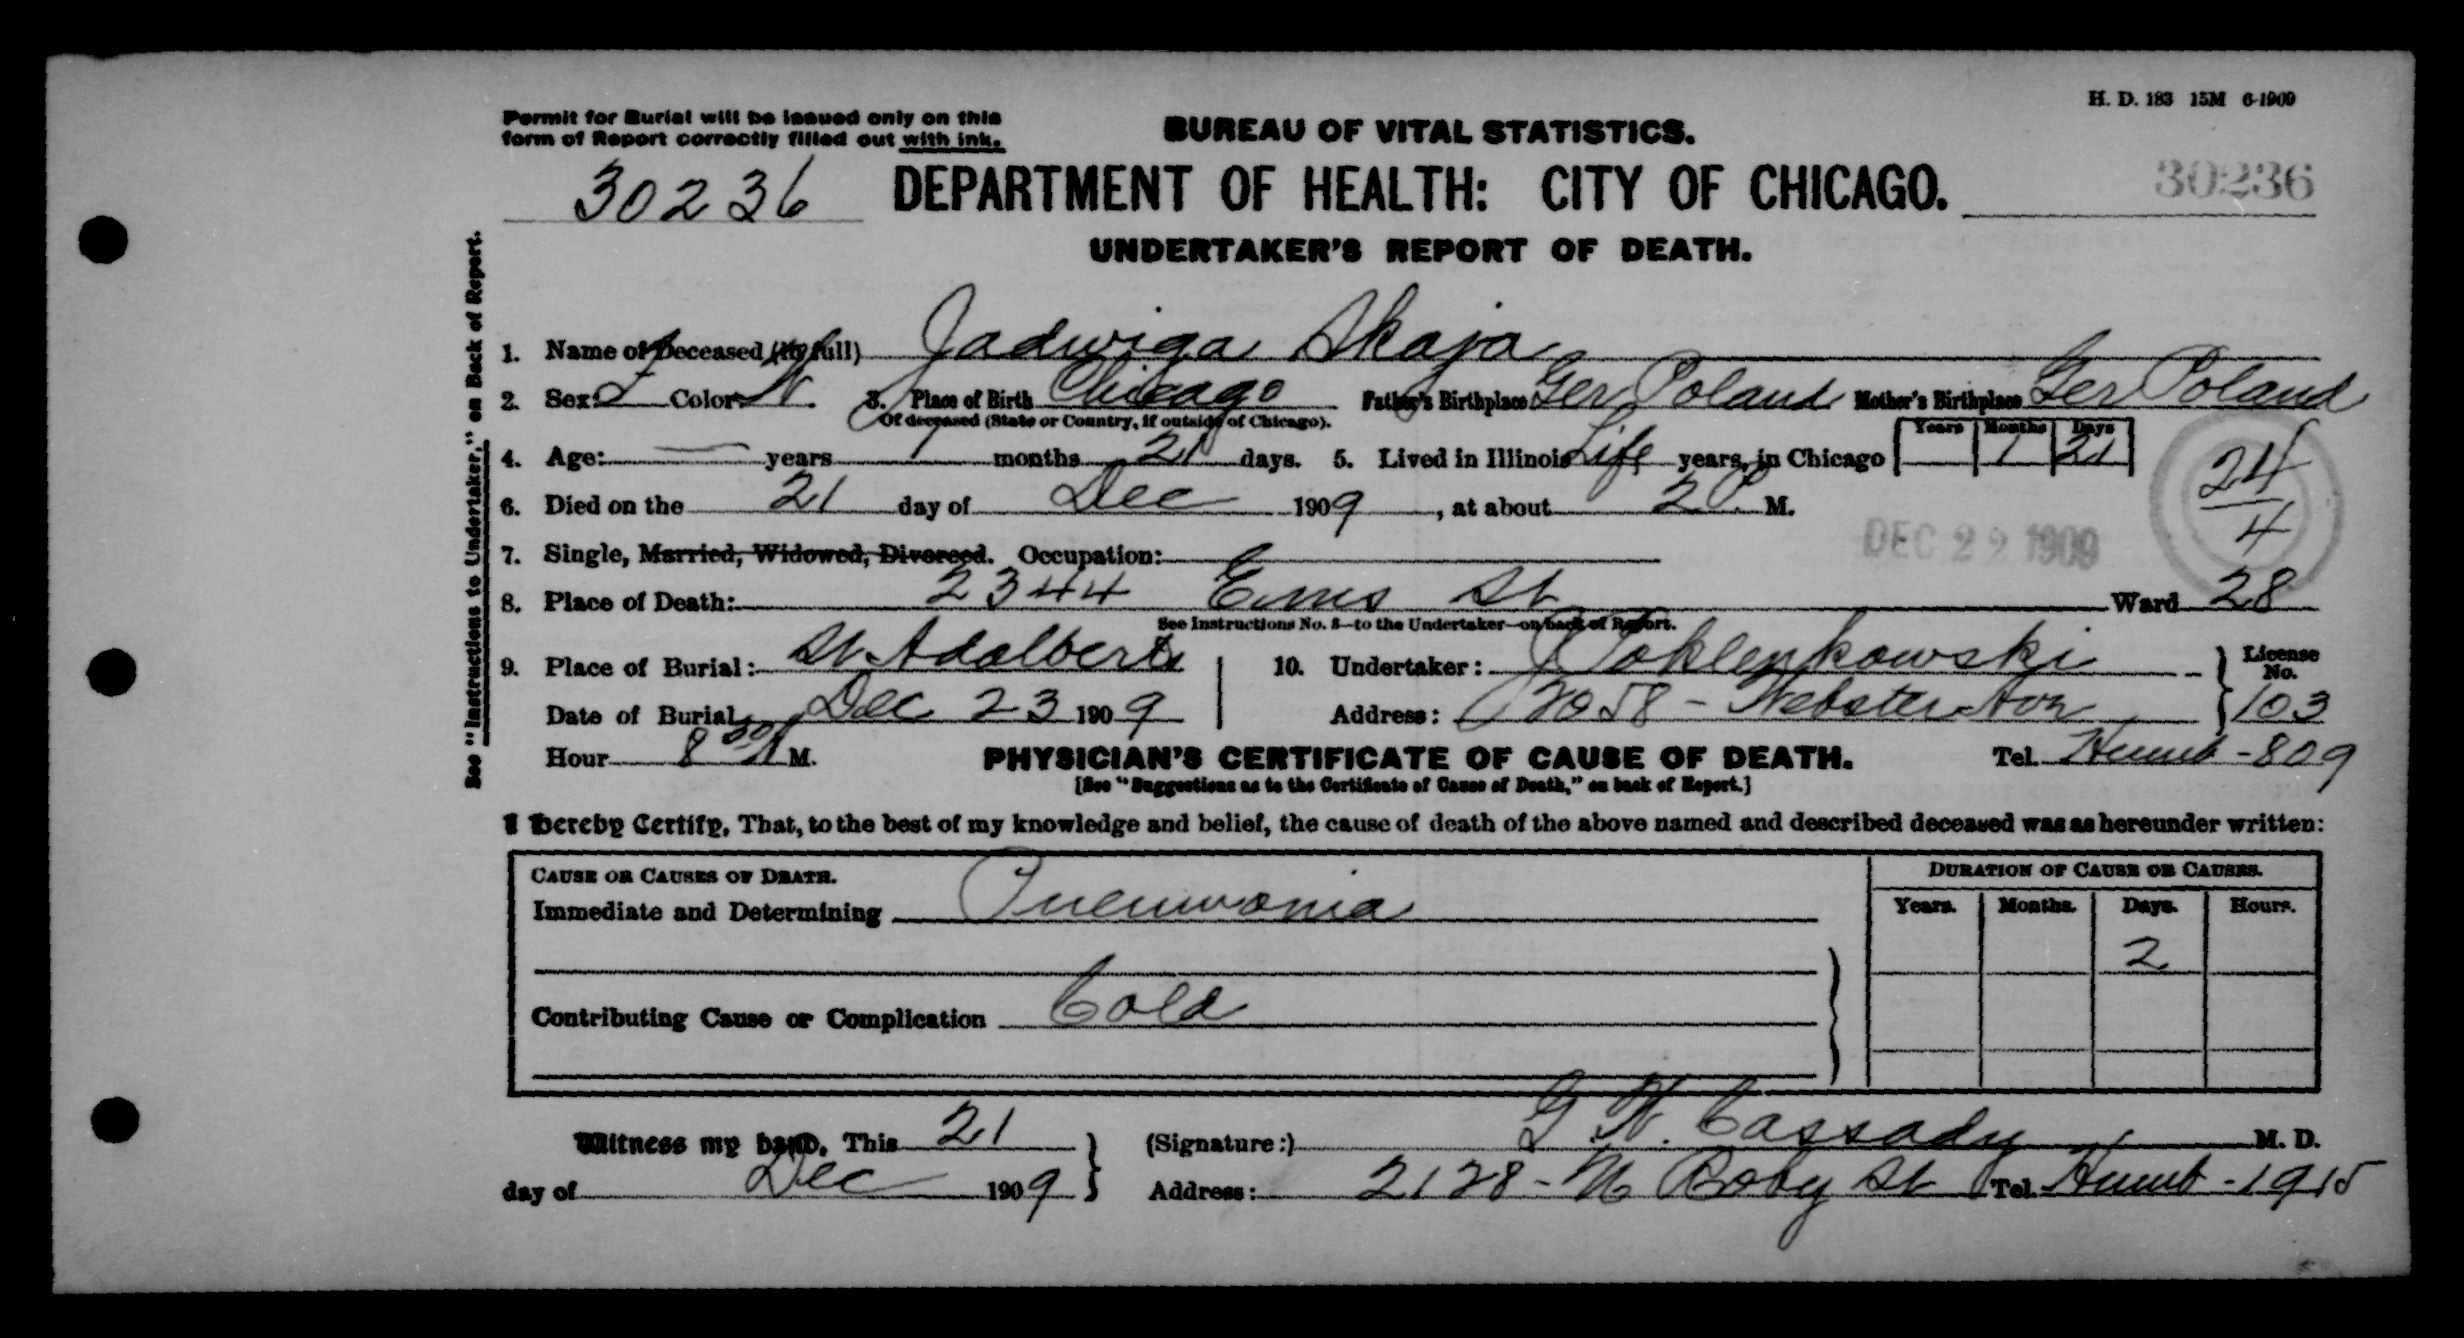 H. D. 183 15M 6-1909
Permit for Burial will be issued only on this
form of Report correctly filled out with ink.
BUREAU OF VITAL STATISTICS.
30236 DEPARTMENT OF HEALTH: CITY OF CHICAGO. 30236
UNDERTAKER'S REPORT OF DEATH.
See "Instructions to Undertaker," on Back of Report.
1. Name of Deceased (in full) Jadwiga Skaja
2. Sex: F Color: W. 3. Place of Birth Chicago Father's Birthplace Ger Poland Mother's Birthplace Ger Poland
Of deceased (State or Country, if outside of Chicago).
4. Age: — years 1 months 21 days. 5. Lived in Illinois Life years, in Chicago Years Months 1 Days 21
24/4
6. Died on the 21 day of Dec 1909, at about 2 P. M.
DEC 22 1909
7. Single, Married, Widowed, Divorced. Occupation:
8. Place of Death: 2344 Ems St Ward 28
See Instructions No. 8—to the Undertaker—on back of Report.
9. Place of Burial: St Adalberts 10. Undertaker: License No.
Date of Burial Dec 23 1909 Address: 2058 - Webster Ave 103
Hour 8 30 A M. PHYSICIAN'S CERTIFICATE OF CAUSE OF DEATH. Tel. Humb - 809
[See "Suggestions as to the Certificate of Cause of Death," on back of Report.]
I Hereby Certify, That, to the best of my knowledge and belief, the cause of death of the above named and described deceased was as hereunder written:
CAUSE OR CAUSES OF DEATH. DURATION OF CAUSE OR CAUSES.
Immediate and Determining Pneumonia Years. Months. Days. Hours.
2
Contributing Cause or Complication Cold
Witness my hand, This 21 (Signature:) G. W. Cassady M. D.
day of Dec 1909 Address: 2128 - N Roby St Tel. Humb - 1915